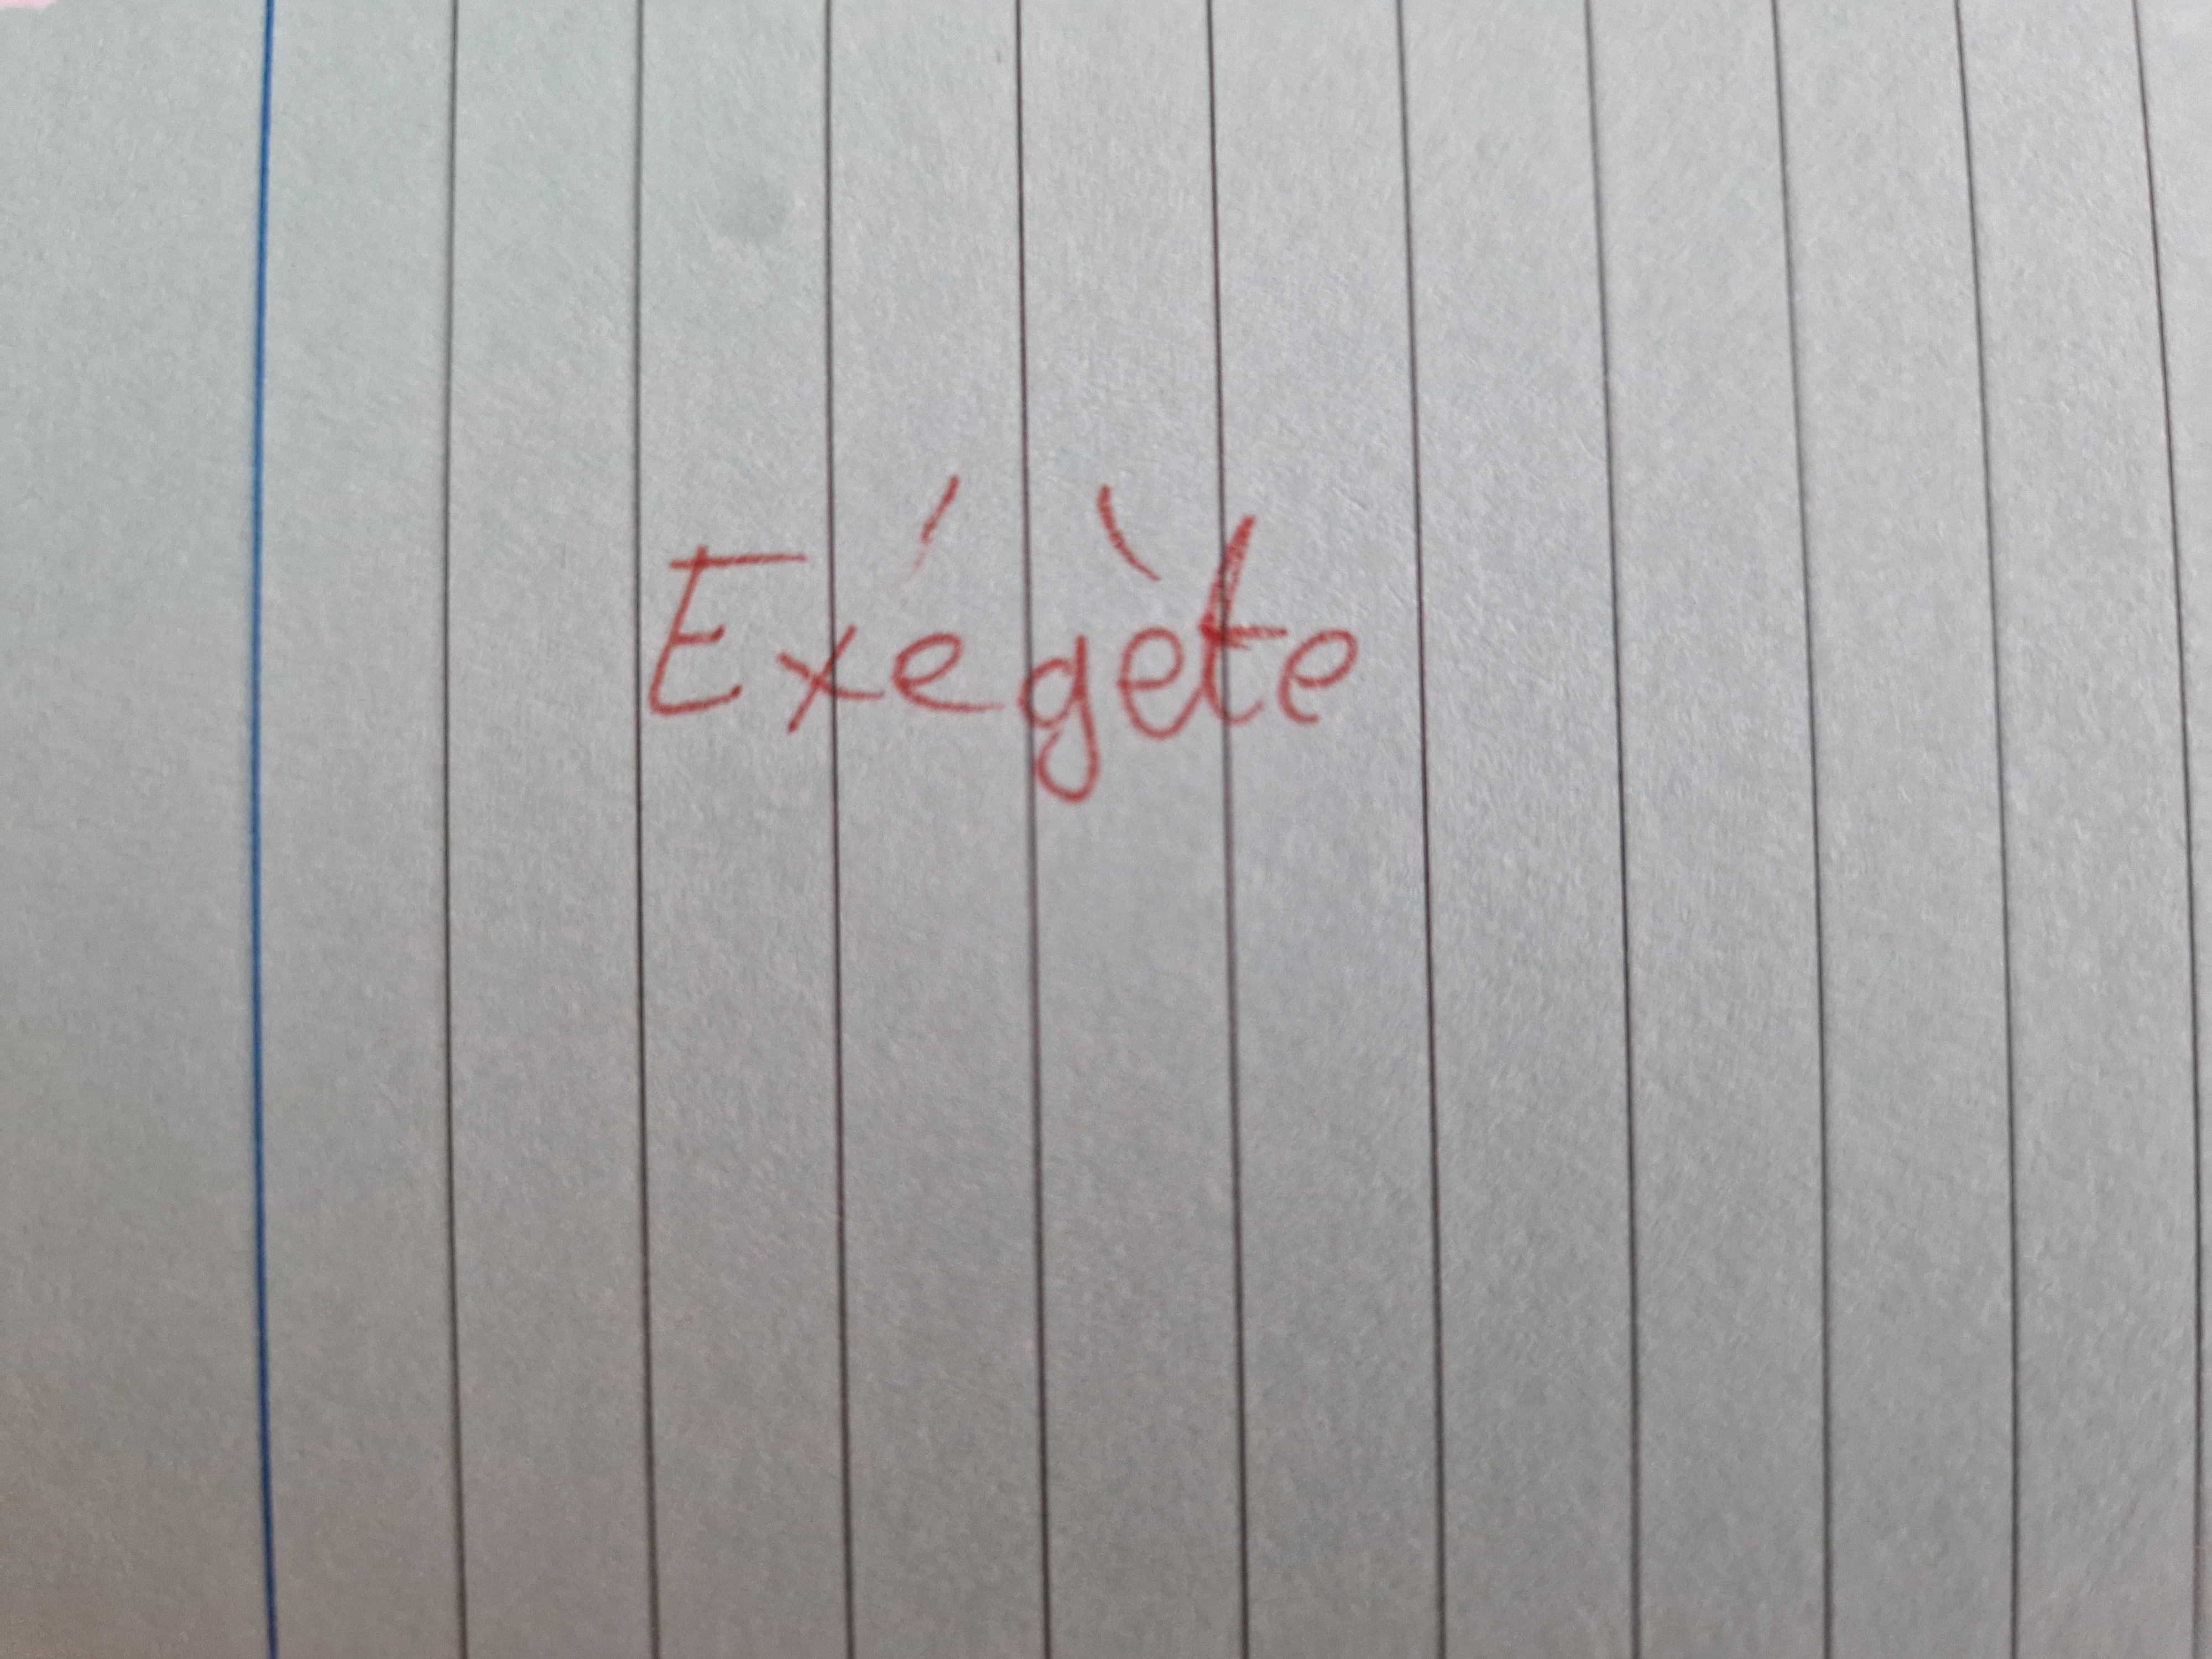 Exégète